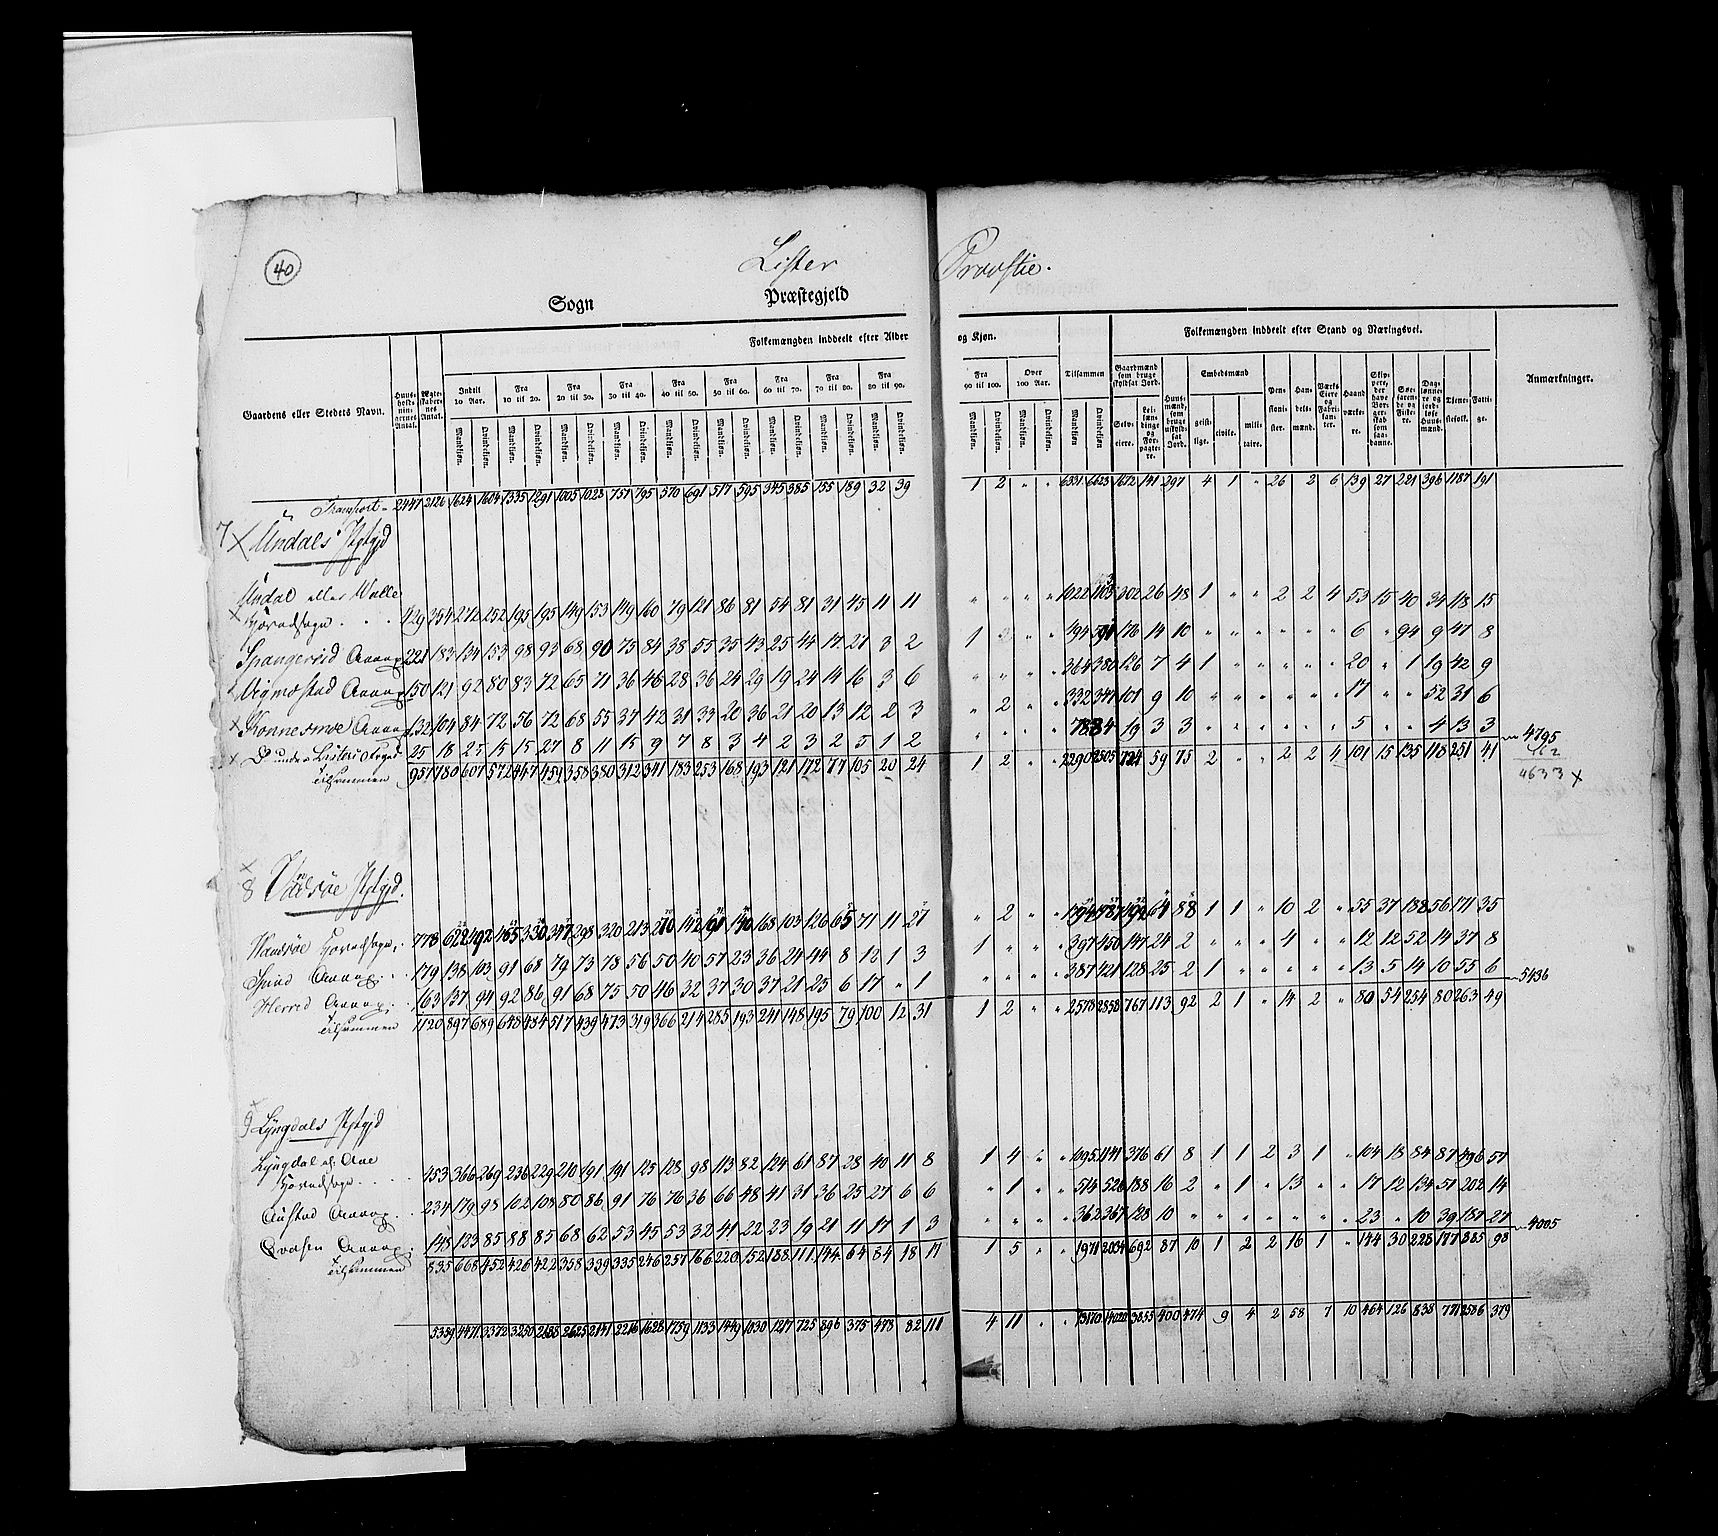 40
Lister Provstie.
Sogn Præstegjeld
Folkemængden inddeelt efter Alder og Kjøn.
Folkemængden inddeelt efter Stand og Næringsvei.
Gaardens eller Stedets Navn.
Huusholdningernes Antal.
Ægteskabernes Antal.
Indtil 10 Aar.
Fra 10 til 20.
Fra 20 til 30.
Fra 30 til 40.
Fra 40 til 50.
Fra 50 til 60.
Fra 60 til 70.
Fra 70 til 80.
Fra 80 til 90.
Fra 90 til 100.
Over 100 Aar.
Tilsammen
Mandkjøn. Qvindekjøn.
Gaardmænd som bruge skyldsat Jord.
Selveiere.
Leilændinge og Forpagtere.
Huusmænd, som bruge uskyldsat Jord.
Embedsmænd
geistlige. civile. militaire.
Pensionister.
Handelsmænd.
Værks Eiere og Fabrikanter.
Haandværkere.
Skippere, der have Borgerskab som saadanne.
Søefarende og Fiskere.
Dagslønnere og jordløse Huusmænd.
Tjenestefolk.
Fattige.
Anmærkninger.
Transport 2447 2126 1624 1604 1335 1291 1005 1023 757 795 570 691 517 595 345 385 155 189 32 39 1 2 " " 6331 6623 1672 141 297 4 1 " 26 2 6 139 27 221 396 1187 191
7 X Undals Pstgjd
Undal eller Walle
Hovedsogn 429 354 272 252 195 195 149 153 149 160 79 121 86 81 54 81 31 45 11 11 " " " " 1022 1105 202 26 48 1 " " 2 2 4 53 15 40 34 118 15
Spangereid Annex 221 183 134 153 98 93 68 90 75 84 38 55 35 43 25 44 17 21 3 2 1 " " 494 591 176 14 10 " " " " " " 6 " 94 9 47 8
Vigmostad Annex 150 121 92 80 83 72 65 71 36 46 28 36 24 29 19 24 14 16 3 6 " " " " 364 380 126 7 4 1 " " " " " 20 " 1 19 42 9
Konnesmoe Annex 132 104 84 72 56 72 68 55 37 42 31 33 20 36 21 20 13 12 2 3 " 2 " " 332 347 101 9 10 " " " " " " 17 " " 52 31 6
D° under Listers Fogd 25 18 25 15 15 27 8 11 15 9 7 8 3 4 2 3 2 5 1 2 " " " " 78 84 19 3 3 " " " " " " 5 " " 4 13 3
Tilsammen 957 780 607 572 447 459 358 380 312 341 183 253 168 193 121 172 77 105 20 24 1 2 " " 2290 2505 724 59 75 2 " " 2 2 4 101 15 135 118 251 41
4795
162
4633 X
8 Vandsøe Pstgjd.
Hovedsogn 778 622 492 465 330 347 298 320 213 270 142 191 140 168 103 126 65 71 11 27 " 2 " " 1794 1987 492 64 88 1 1 " 10 2 " 55 37 188 56 171 35
Spind Annex 179 138 103 91 68 79 73 78 56 50 40 57 23 36 24 44 8 12 1 3 1 " " " 397 450 147 24 2 " " " 4 " " 12 12 52 14 37 8
Herred Annex 163 137 94 92 86 91 68 75 50 46 32 37 30 37 21 25 6 17 " 1 " " " " 387 421 128 25 2 1 " " " " " 13 5 14 10 55 6
5436
Tilsammen 1120 897 689 648 484 517 439 473 319 366 214 285 193 241 148 195 79 100 12 31 1 2 " " 2578 2858 767 113 92 2 1 " 14 2 " 80 54 254 80 263 49
9 Lyngdals Pstgjd
Lyngdal el. Aae
Hovedsogn 453 366 269 236 229 210 191 191 125 128 98 113 82 124 61 87 28 40 11 8 1 4 " " 1095 1141 376 61 8 1 1 2 3 1 " 104 18 84 87 496 57
Austad Annex 234 179 98 102 108 80 86 91 76 76 36 66 48 41 31 36 25 27 6 6 " 1 " " 514 526 188 16 2 " 1 " 13 " " 17 12 134 51 202 14
Qvaasen Annex 148 123 85 88 85 68 62 53 45 53 32 41 22 23 19 21 11 17 1 3 " " " " 362 367 128 10 " " " " " " " 23 " 10 39 187 27
4005
Tilsammen 835 668 452 426 422 358 339 335 246 257 166 220 152 188 111 144 64 84 18 17 1 5 " " 1971 2034 692 87 10 1 2 2 16 1 " 144 30 228 177 885 98
5359 4471 3372 3250 2688 2625 2141 2216 1628 1759 1133 1449 1030 1217 725 896 375 478 82 111 4 11 " " 13170 14020 3855 400 474 9 4 2 58 7 10 464 126 838 771 2586 379